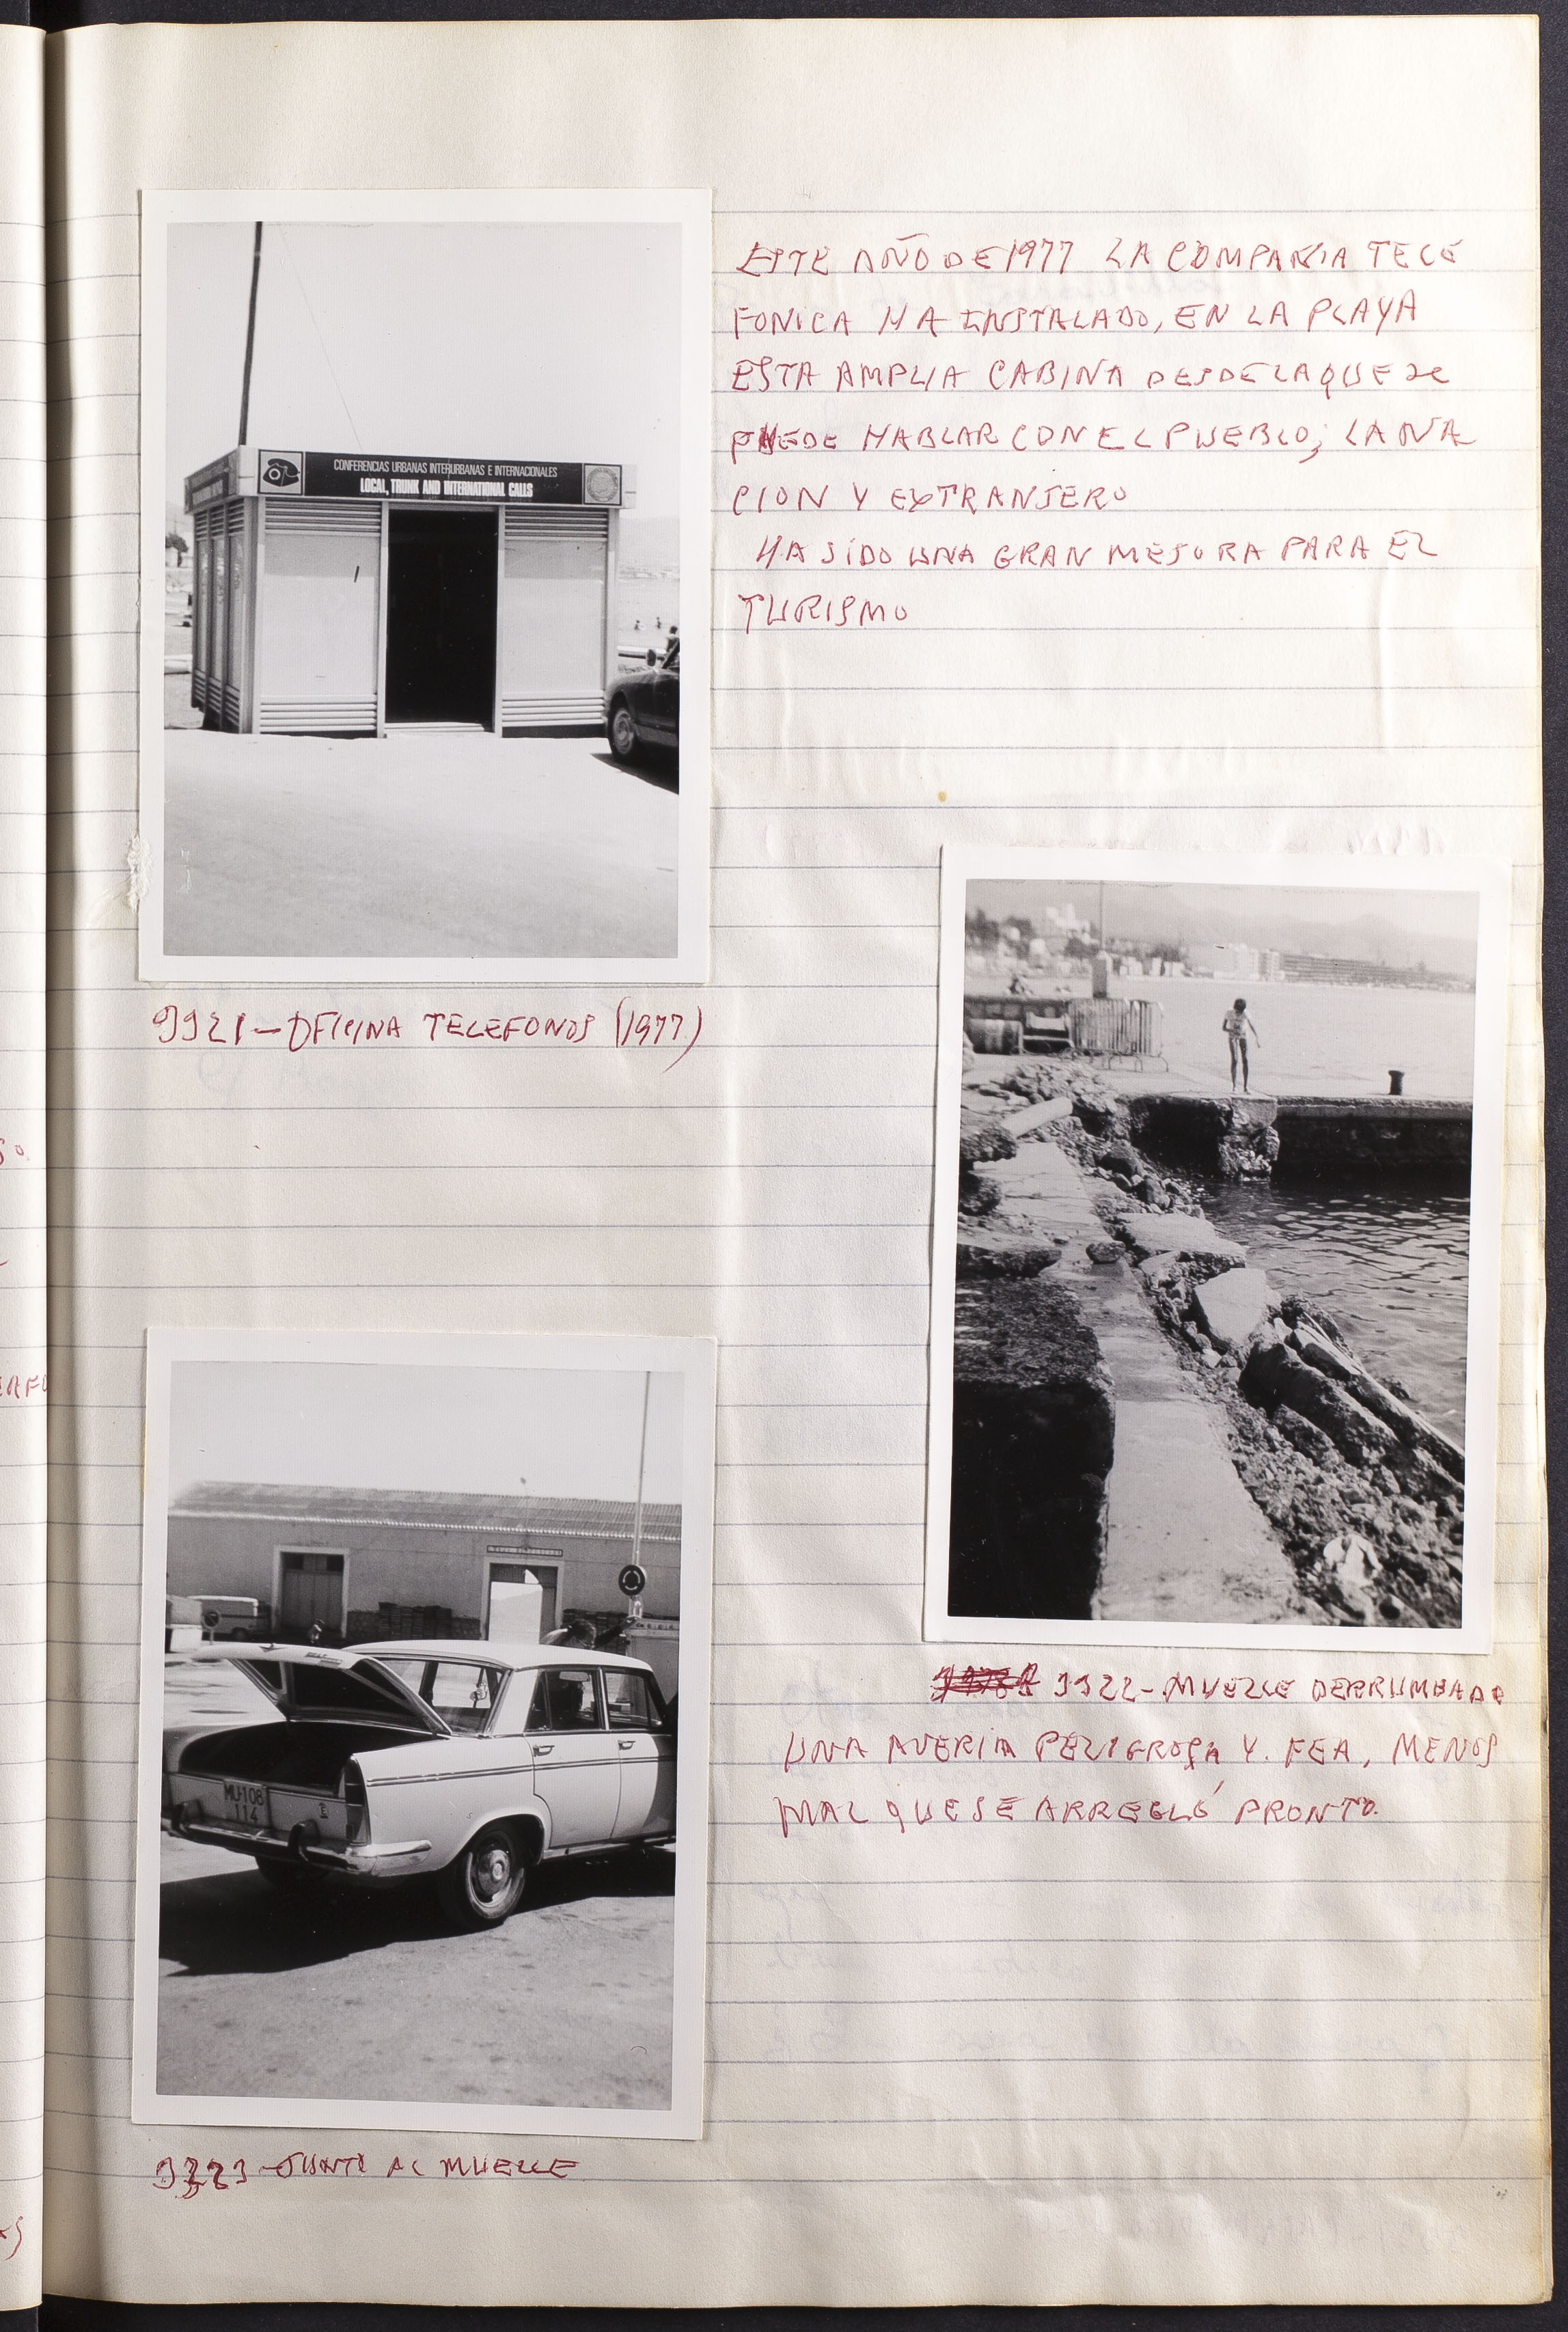 ESTE AÑO DE 1977 LA COMPAÑIA TELE
FONICA HA INSTALADO, EN LA PLAYA
ESTA AMPLIA CABINA DESDE LA QUE se
PUEDE HABLAR CON EL PUEBLO, LA NA
CION Y EXTRANJERO
HA SIDO UNA GRAN MEJORA PARA EL
TURISMO
CONFERENCIAS URBANAS INTERURBANAS E INTERNACIONALES
LOCAL, TRUNK AND INTERNATIONAL CALLS
9921-OFICINA TELEFONOS (1977)
9922-MUELLE DERRUMBADO
UNA AVERIA PELIGROSA Y. FEA, MENOS
MAL QUE SE ARREGLÓ PRONTO.
MU-108
114
9923-JUNTO AL MUELLE